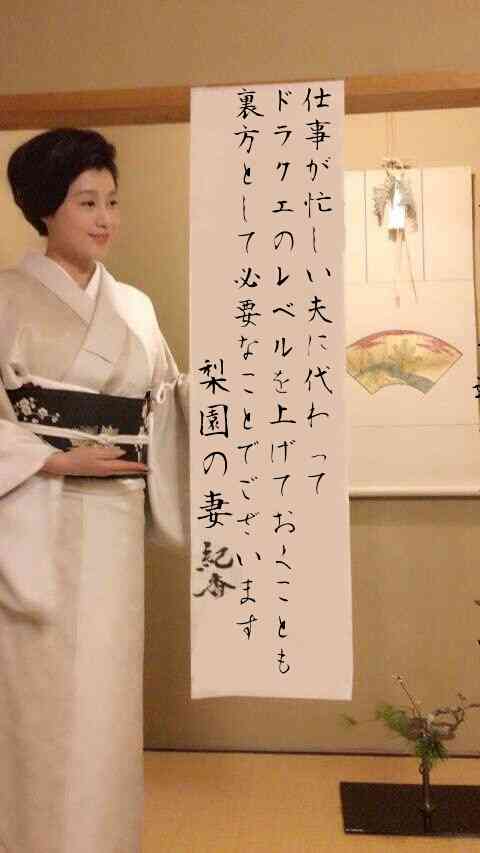 仕事が忙しい夫に代わって
ドラクエのレベルを上げておくことも
裏方として必要なことでございます
梨園の妻 紀香